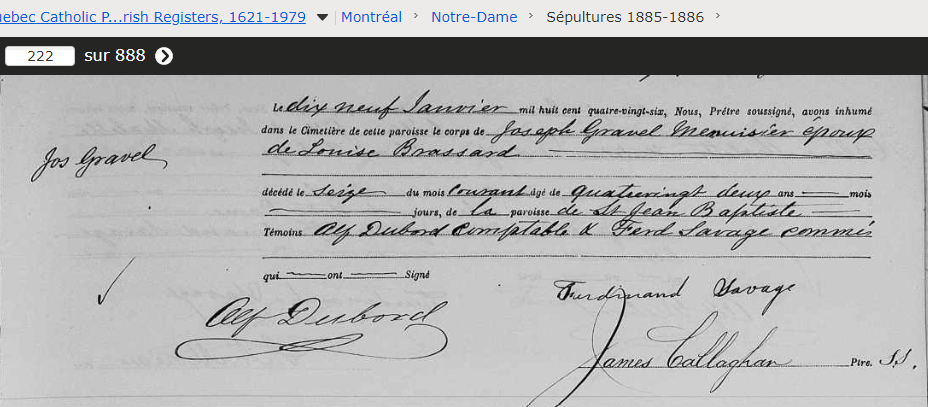 uebec Catholic P...rish Registers, 1621-1979 Montréal › Notre-Dame › Sépultures 1885-1886 ›
222 sur 888
Le dix neuf Janvier mil huit cent quatre-vingt-six, Nous, Prêtre soussigné, avons inhumé
dans le Cimetière de cette paroisse le corps de Joseph Gravel Menuisier époux
Jos Gravel
de Louise Brassard
décédé le seize du mois courant âgé de quatrevingt deux ans mois
jours, de la paroisse de St Jean Baptiste
Témoins Alf Dubord Comptable & Ferd Savage commis
qui ont Signé
Ferdinand Savage
Alf Dubord
James Callaghan Ptre. S.S.